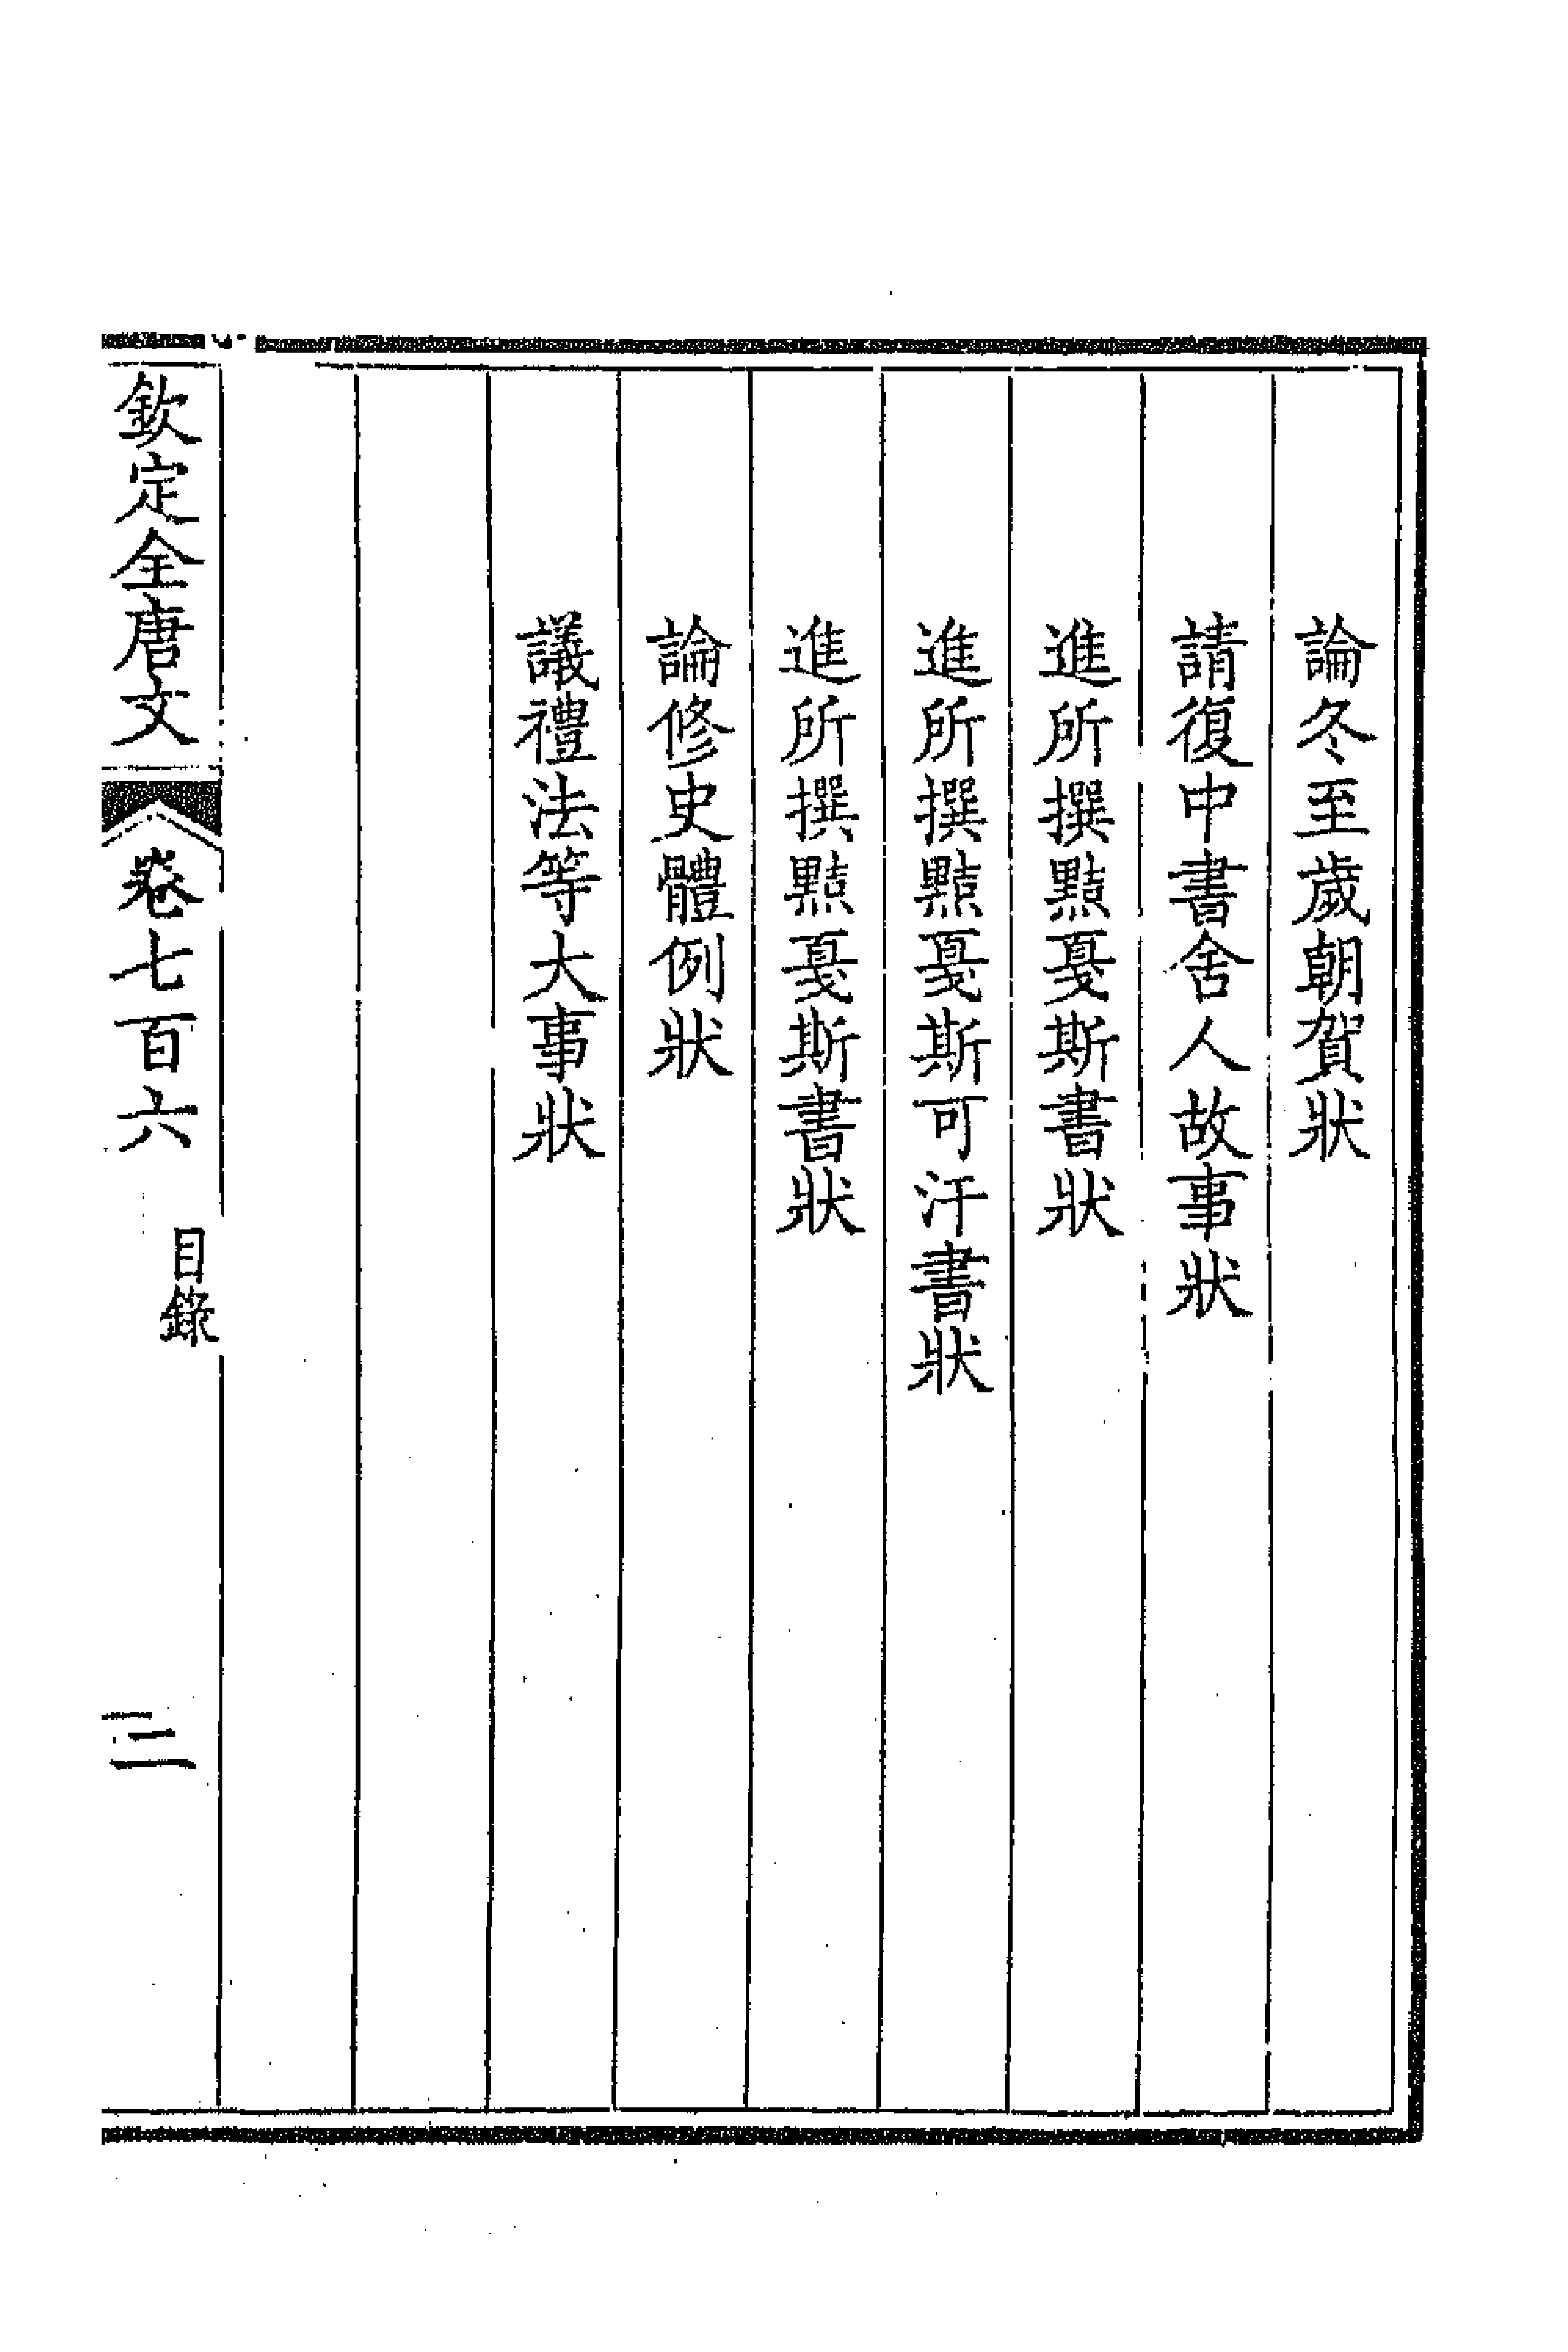 論冬至歲朝賀狀
請復中書舍人故事狀
進所撰黠戛斯書狀
進所撰黠戛斯可汗書狀
進所撰黠戛斯書狀
論修史體例狀
議禮法等大事狀
欽定全唐文 卷七百六 目錄 三